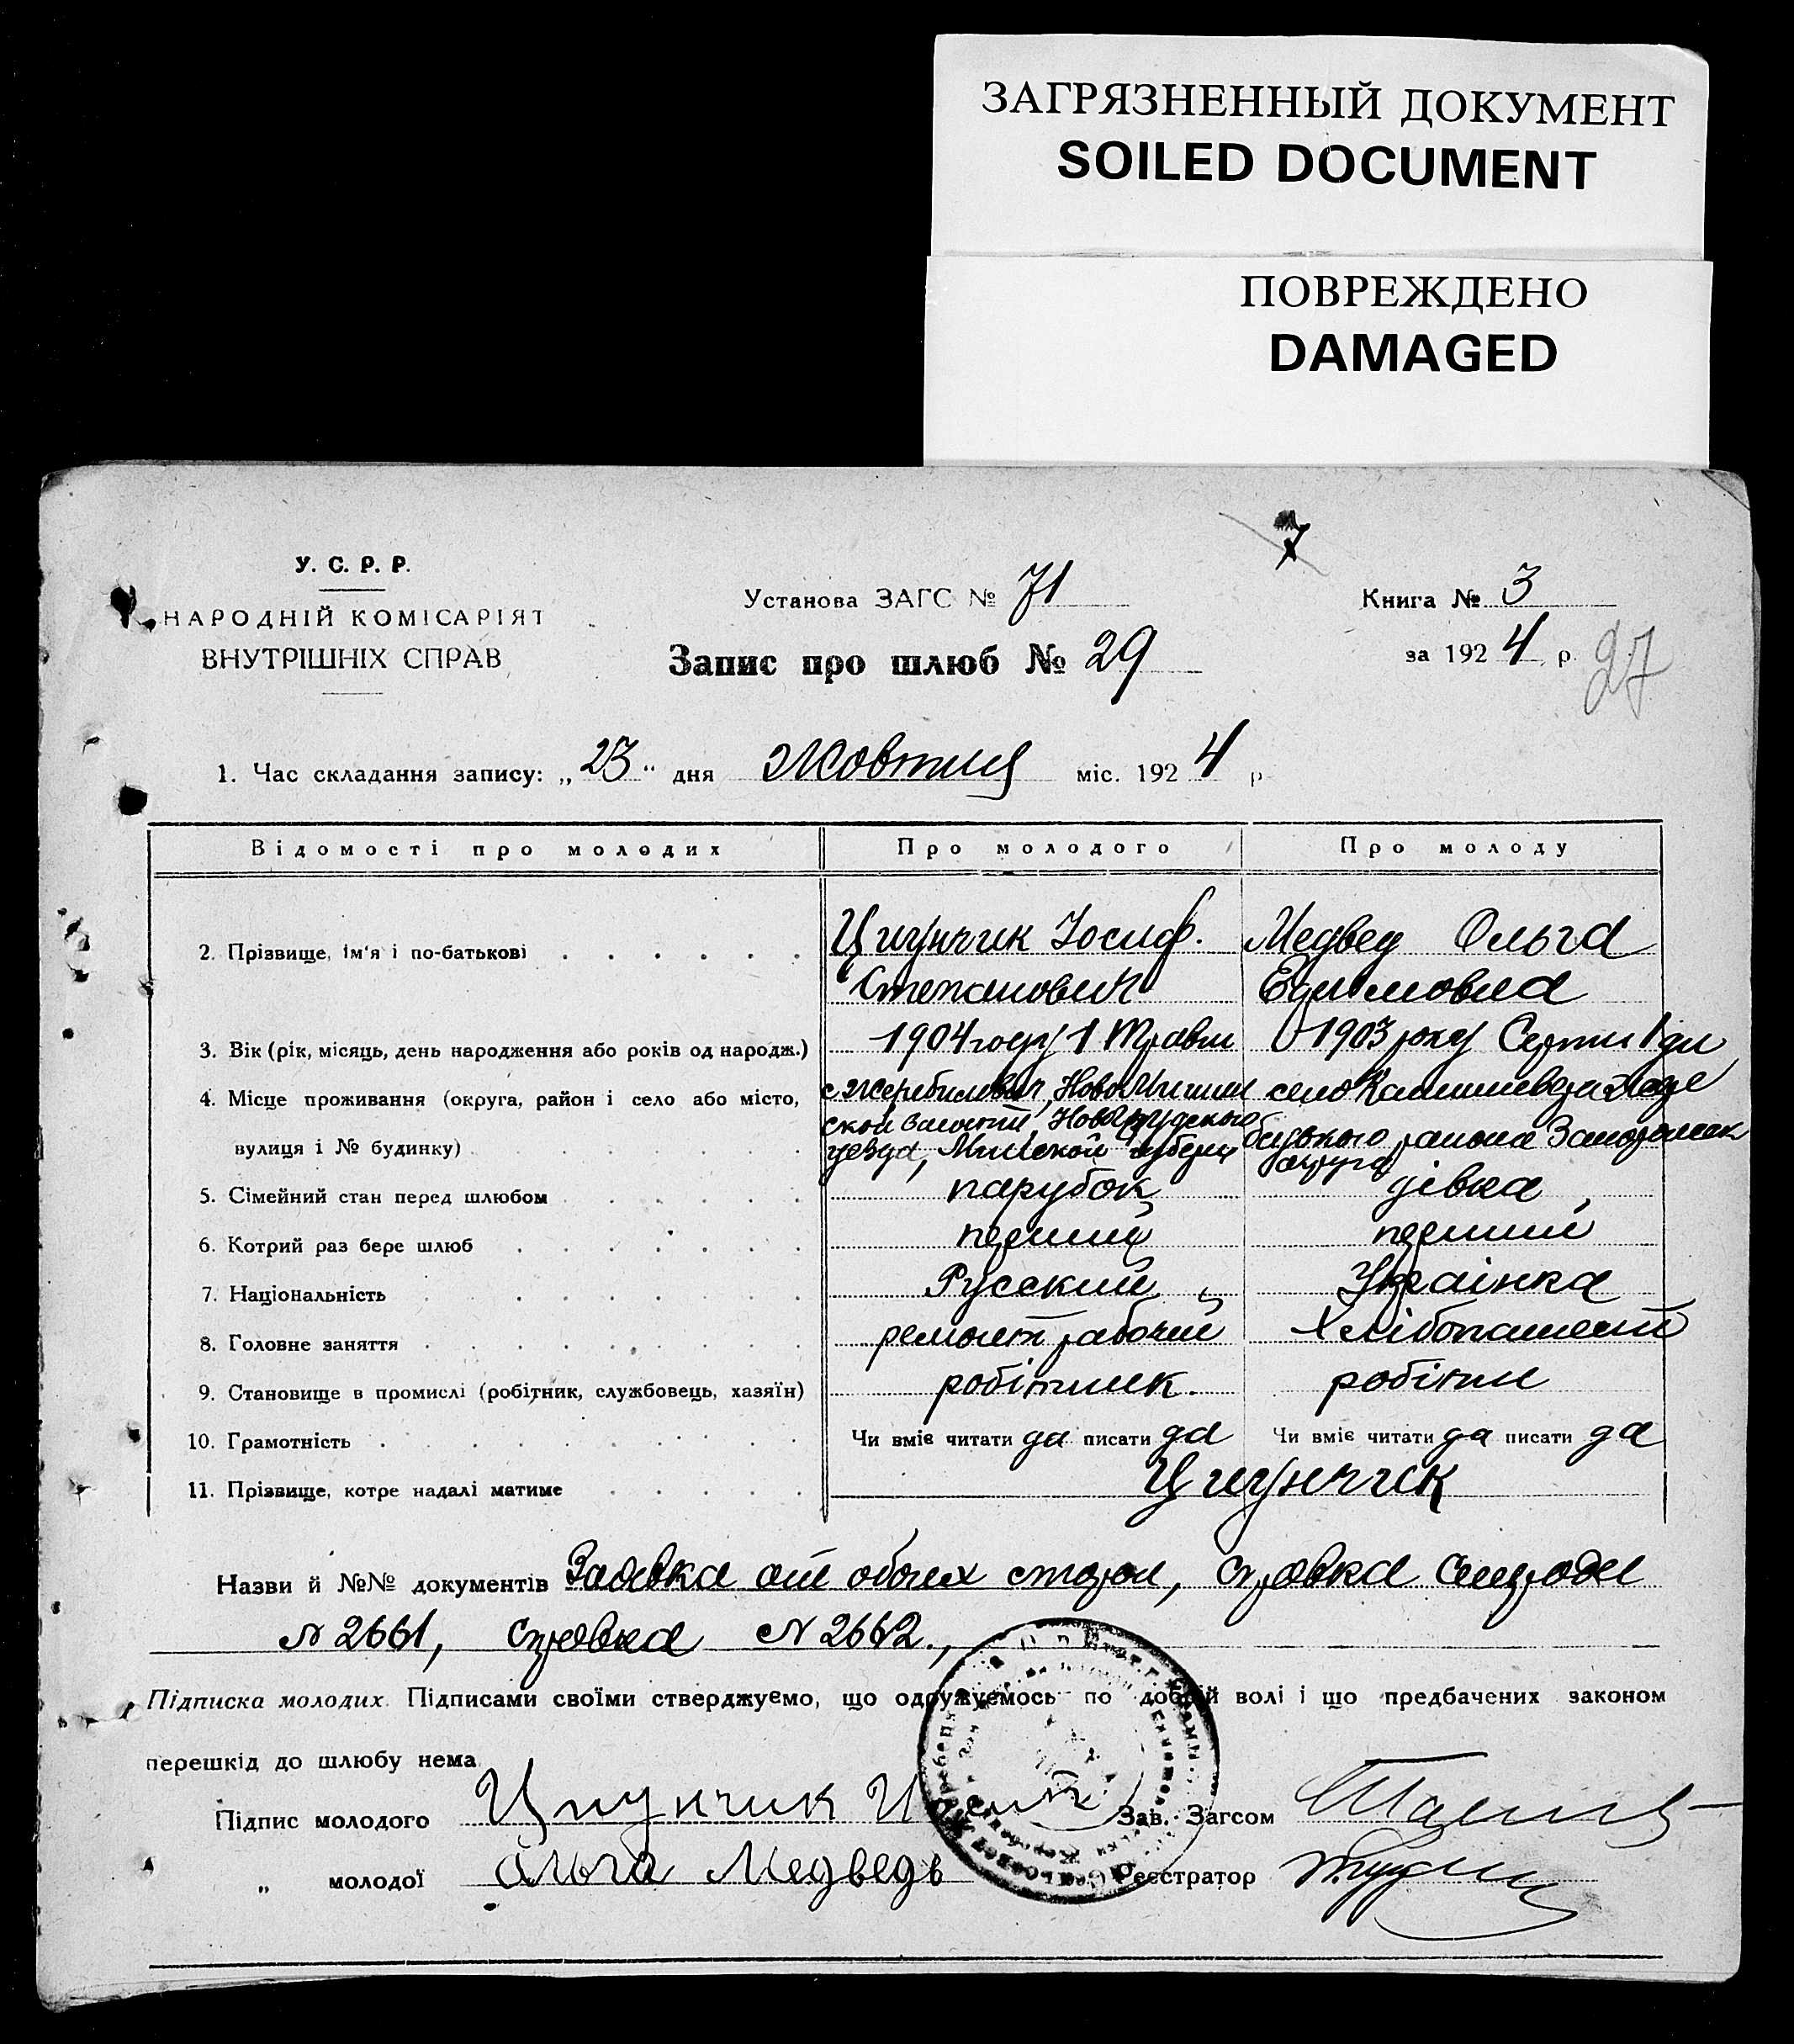 ЗАГРЯЗНЕННЫЙ ДОКУМЕНТ
SOILED DOCUMENT
ПОВРЕЖДЕНО
DAMAGED
7
У. С. Р. Р.
НАРОДНІЙ КОМІСАРІЯТ
ВНУТРІШНІХ СПРАВ
Установа ЗАГС № 71
Запис про шлюб № 29
Книга № 3
за 1924 р.
27
1. Час складання запису: „23“ дня Жовтня міс. 1924 р
Відомості про молодих Про молодого Про молоду
2. Прізвище, ім'я і по-батькові Цигунчик Іосиф. Медвед Ольга
Степанович Ефимовна
3. Вік (рік, місяць, день народження або років од народж.) 1904 году 1 Травн 1903 року Серпн 1 дн
4. Місце проживання (округа, район і село або місто, село
вулиця і № будинку) ской волости Новогрудського района
уезда, Минской губерн округа
5. Сімейний стан перед шлюбом парубок дівка
6. Котрий раз бере шлюб перший перший
7. Національність Русский Украінка
8. Головне заняття ремонт рабочий Хлібопашест
9. Становище в промислі (робітник, службовець, хазяїн) робітник. робітн
10. Грамотність Чи вміє читати да писати да Чи вміє читати да писати да
11. Прізвище, котре надалі матиме Цигунчик
Назви й №№ документів Заявка от обоих сторон, справка
N 2661, справка N 2662.,
Підписка молодих. Підписами своїми стверджуємо, що одружуємось по добрій волі і що предбачених законом
перешкід до шлюбу нема
Підпис молодого Цигунчик Зав. Загсом
„ молодої Ольга Медведь Реєстратор